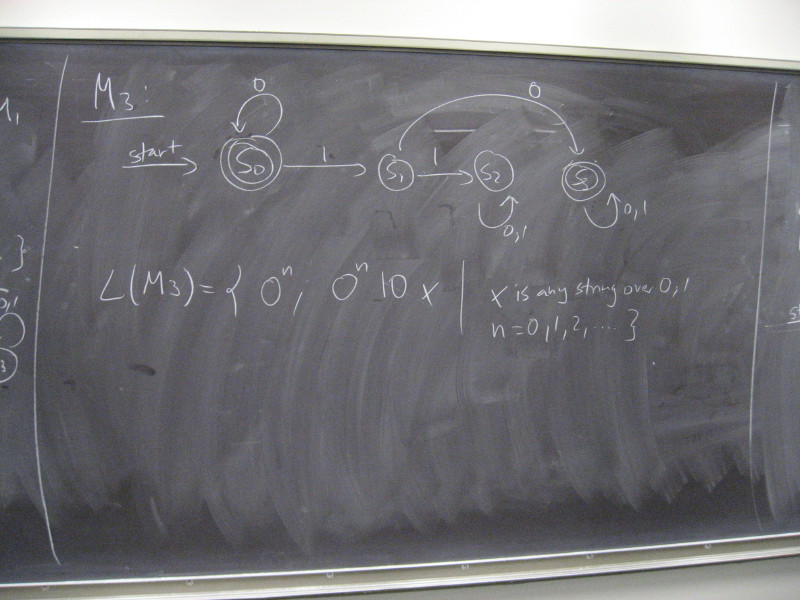 M₃:
0
0
start
S₀
1
S₁
1
S₂
S₃
0,1
0,1
L(M₃) = { 0ⁿ, 0ⁿ 10 x | x is any string over 0,1
n = 0, 1, 2, .... }